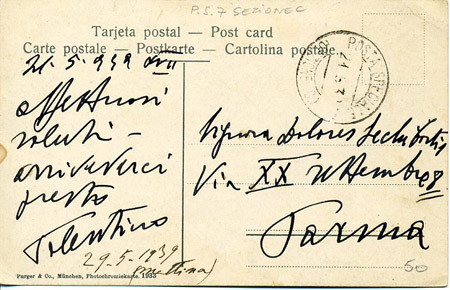 P.S. 7 SEZIONE C
Tarjeta postal — Post card
Carte postale — Postkarte — Cartolina postale
21-5-939 XVII
POSTA SPECIALE
affettuosi
saluti —
arrivederci
presto
Tolentino
29-5-1939
(mattina)
Signora Dolores
Via XX Settembre 8
Parma
Purger & Co., München, Photochromiekarte. 1935
50